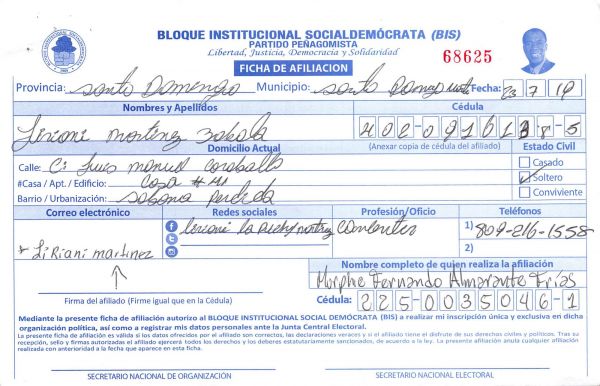 BLOQUE INSTITUCIONAL SOCIALDEMÓCRATA (BIS)
PARTIDO PEÑAGOMISTA
Libertad, Justicia, Democracia y Solidaridad
68625
FICHA DE AFILIACION
Provincia: Santo Domingo Municipio: Santo Domingo Fecha: 23 7 19
Nombres y Apellidos Cédula
Liriani Martinez Zabala 402-0916138-5
Domicilio Actual (Anexar copia de cédula del afiliado) Estado Civil
Calle: C: Luis manuel caraballo Casado
#Casa / Apt. / Edificio: Casa # 41 Soltero
Barrio / Urbanización: sabana perdida Conviviente
Correo electrónico Redes sociales Profesión/Oficio Teléfonos
liriani la 1) 809-216-1558
2)
* Liriani martinez
Nombre completo de quien realiza la afiliación
Morphe Fernando Almarante Frías
Firma del afiliado (Firme igual que en la Cédula) Cédula: 225-0035046-1
Mediante la presente ficha de afiliación autorizo al BLOQUE INSTITUCIONAL SOCIAL DEMÓCRATA (BIS) a realizar mi inscripción única y exclusiva en dicha
organización política, así como a registrar mis datos personales ante la Junta Central Electoral.
La presente ficha de afiliación es válida si los datos ofrecidos por el afiliado son correctos, las declaraciones veraces y si el afiliado tiene el disfrute de sus derechos civiles y políticos. Tras su
recepción, sello y firmas autorizadas el afiliado ejercerá todos los derechos y los deberes estatutariamente sancionados, de acuerdo a la ley. La presente afiliación anula cualquier afiliación
realizada con anterioridad a la fecha que aparece en esta ficha.
SECRETARIO NACIONAL DE ORGANIZACIÓN SECRETARIO NACIONAL ELECTORAL